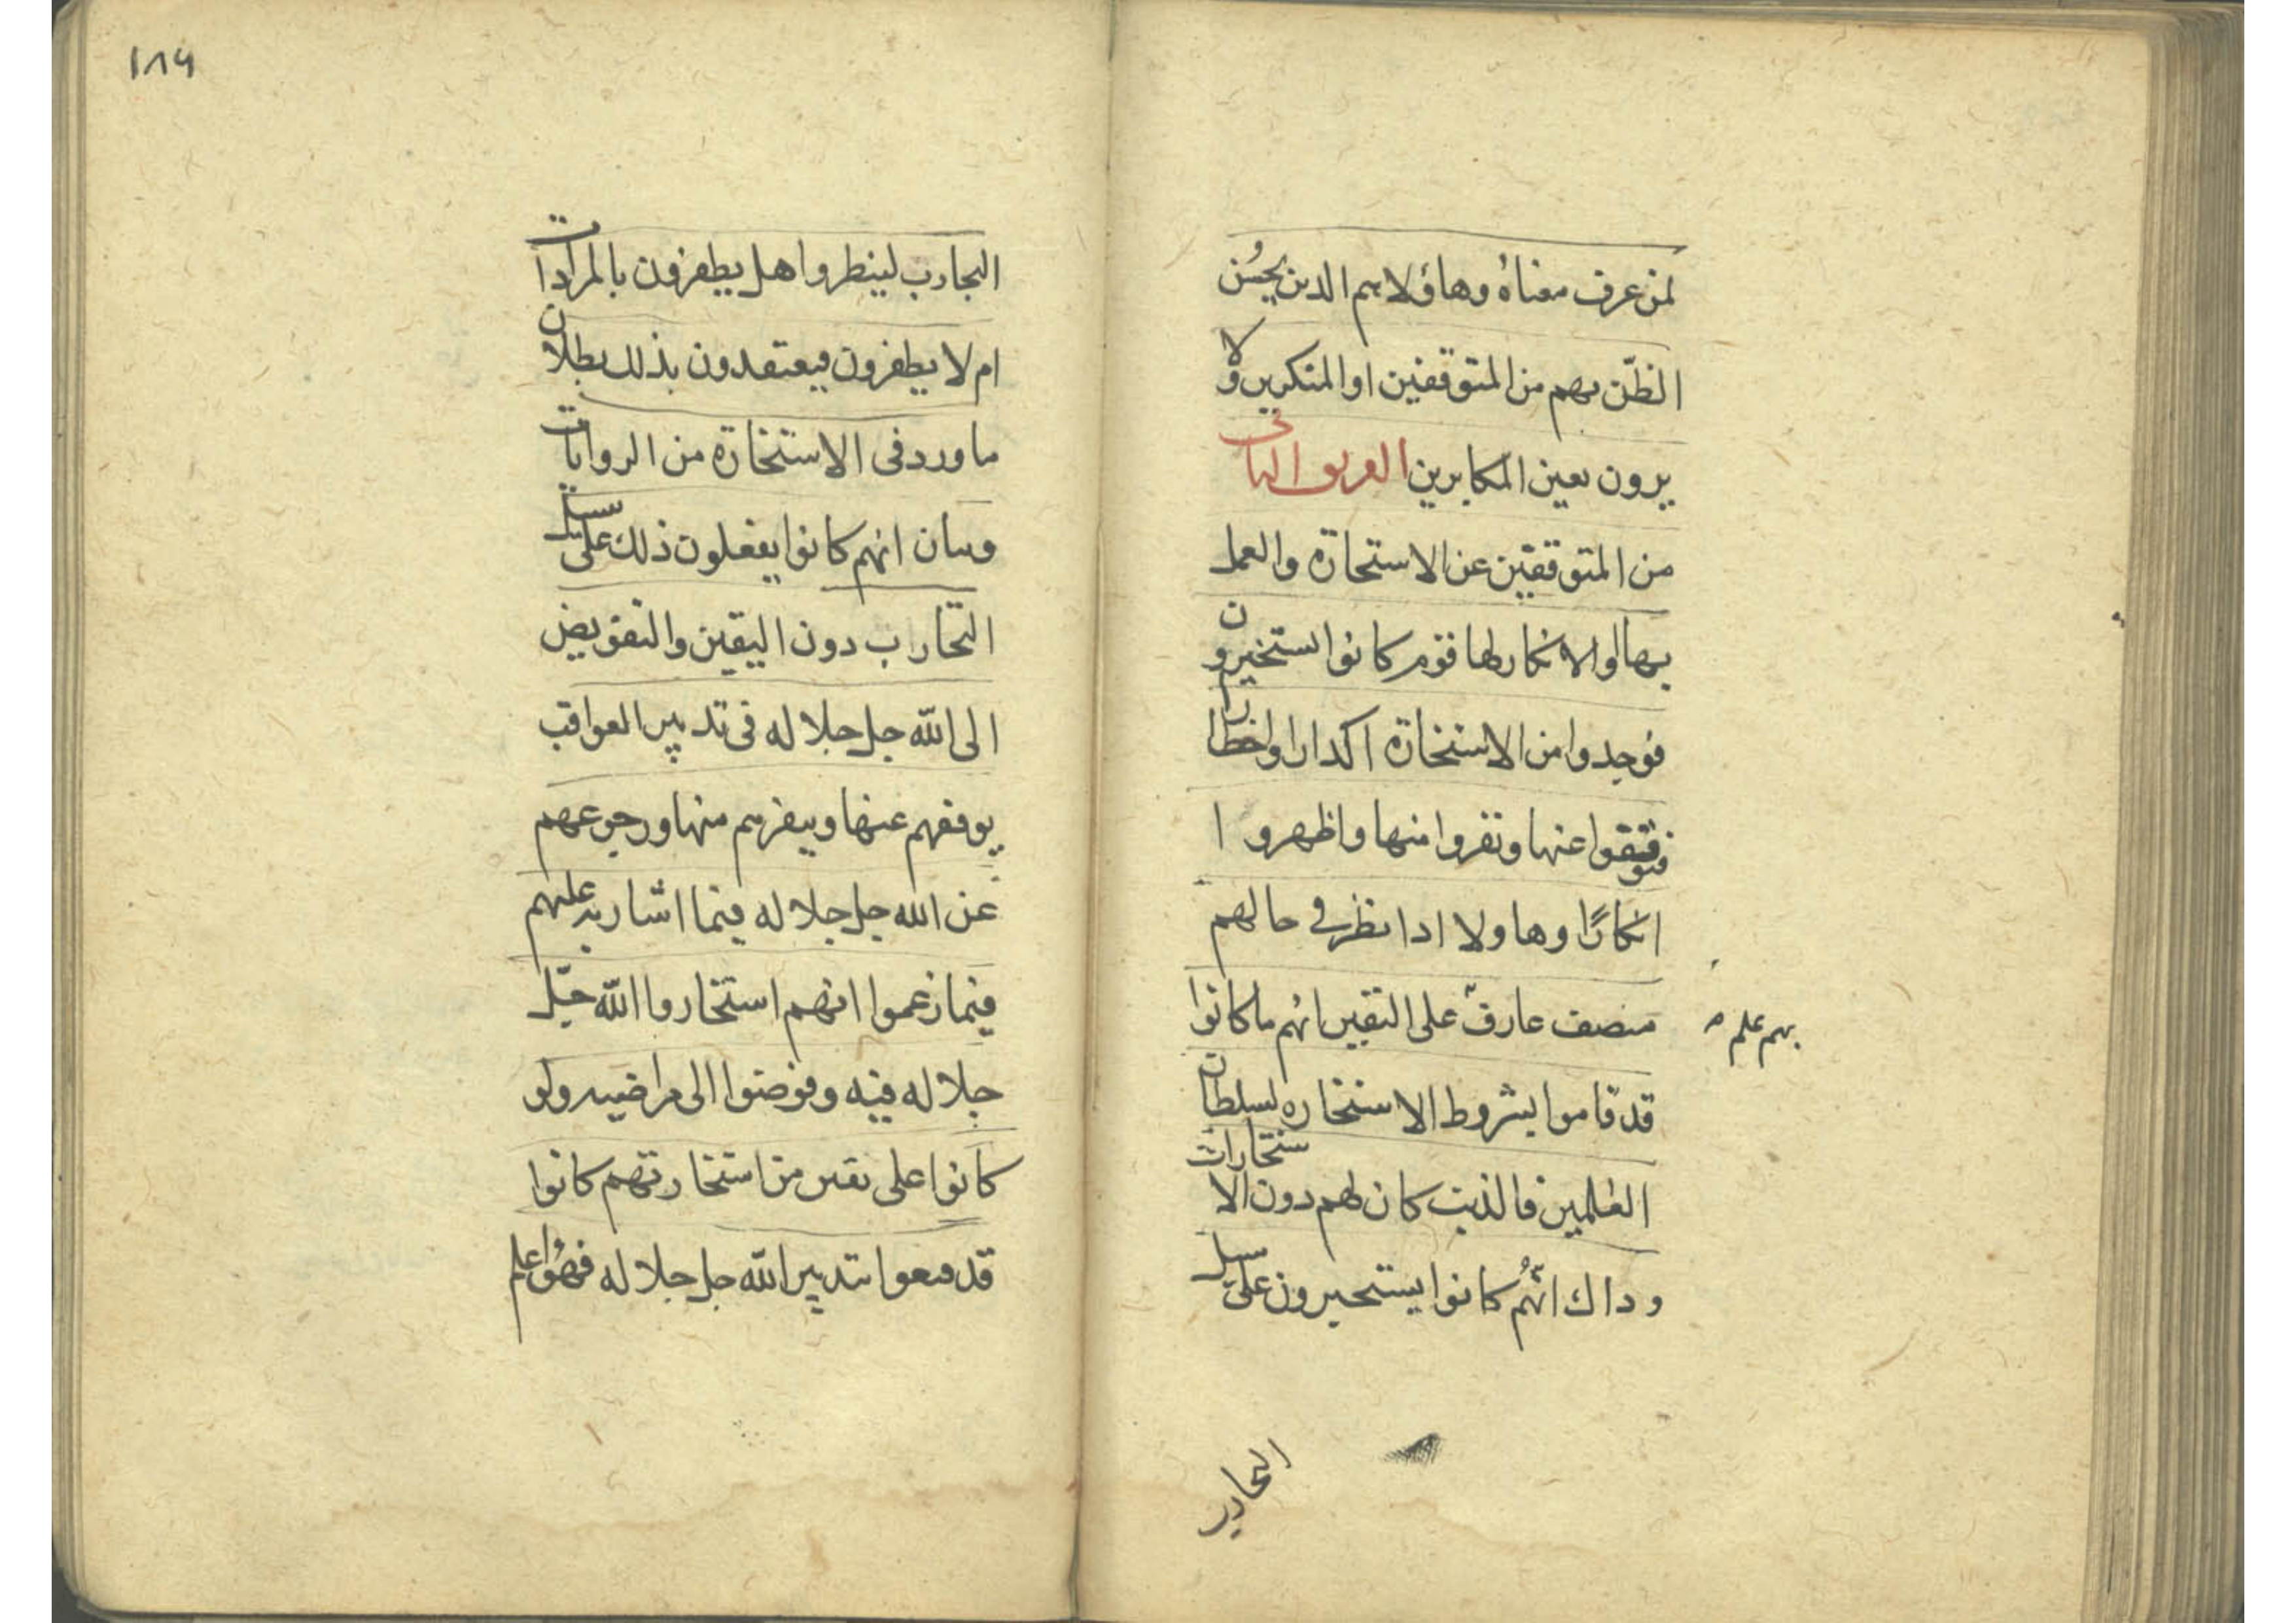 لمن عرف معناه وهاؤلاء هم الذين يحسُن
الظنّ بهم من المتوقفين او المنكرين ولا
يرون بعين المكابرين الفريق الثانى
من المتوقفين عن الاستخارة والعمل
بها او الانكار لها قوم كانوا يستخيرون
فوجدوا من الاستخارة اكدارا واخطارا
فتوقفوا عنها ونفروا منها واظهروا
انكارًا وهاولا اذا نظر في حالهم
منصف عارف على اليقين انهم ما كانوا
بهم علم
قد قاموا بشروط الاستخاره لسلطان
العلمين فالذنب كان لهم دون الاستخارات
وذاك انّهُم كانوا يستخيرون على سبيل
التجارب
١٨٩
التجارب لينظروا هل يظفرون بالمرادات
ام لا يظفرون فيعتقدون بذلك بطلان
ما ورد فى الاستخارة من الروايات
وبيان انهم كانوا يفعلون ذلك على سبيل
التجارب دون اليقين والتفويض
الى الله جل جلاله فى تدبير العواقب
توقفهم عنها ونفرهم منها ورجوعهم
عن الله جل جلاله فيما اشار به عليهم
فيما زعموا انهم استخاروا الله جلّ
جلاله فيه وفوضوا الى مراضيه ولو
كانوا على يقين من استخارتهم كانوا
قد قنعوا بتدبير الله جل جلاله فهُو اعلم